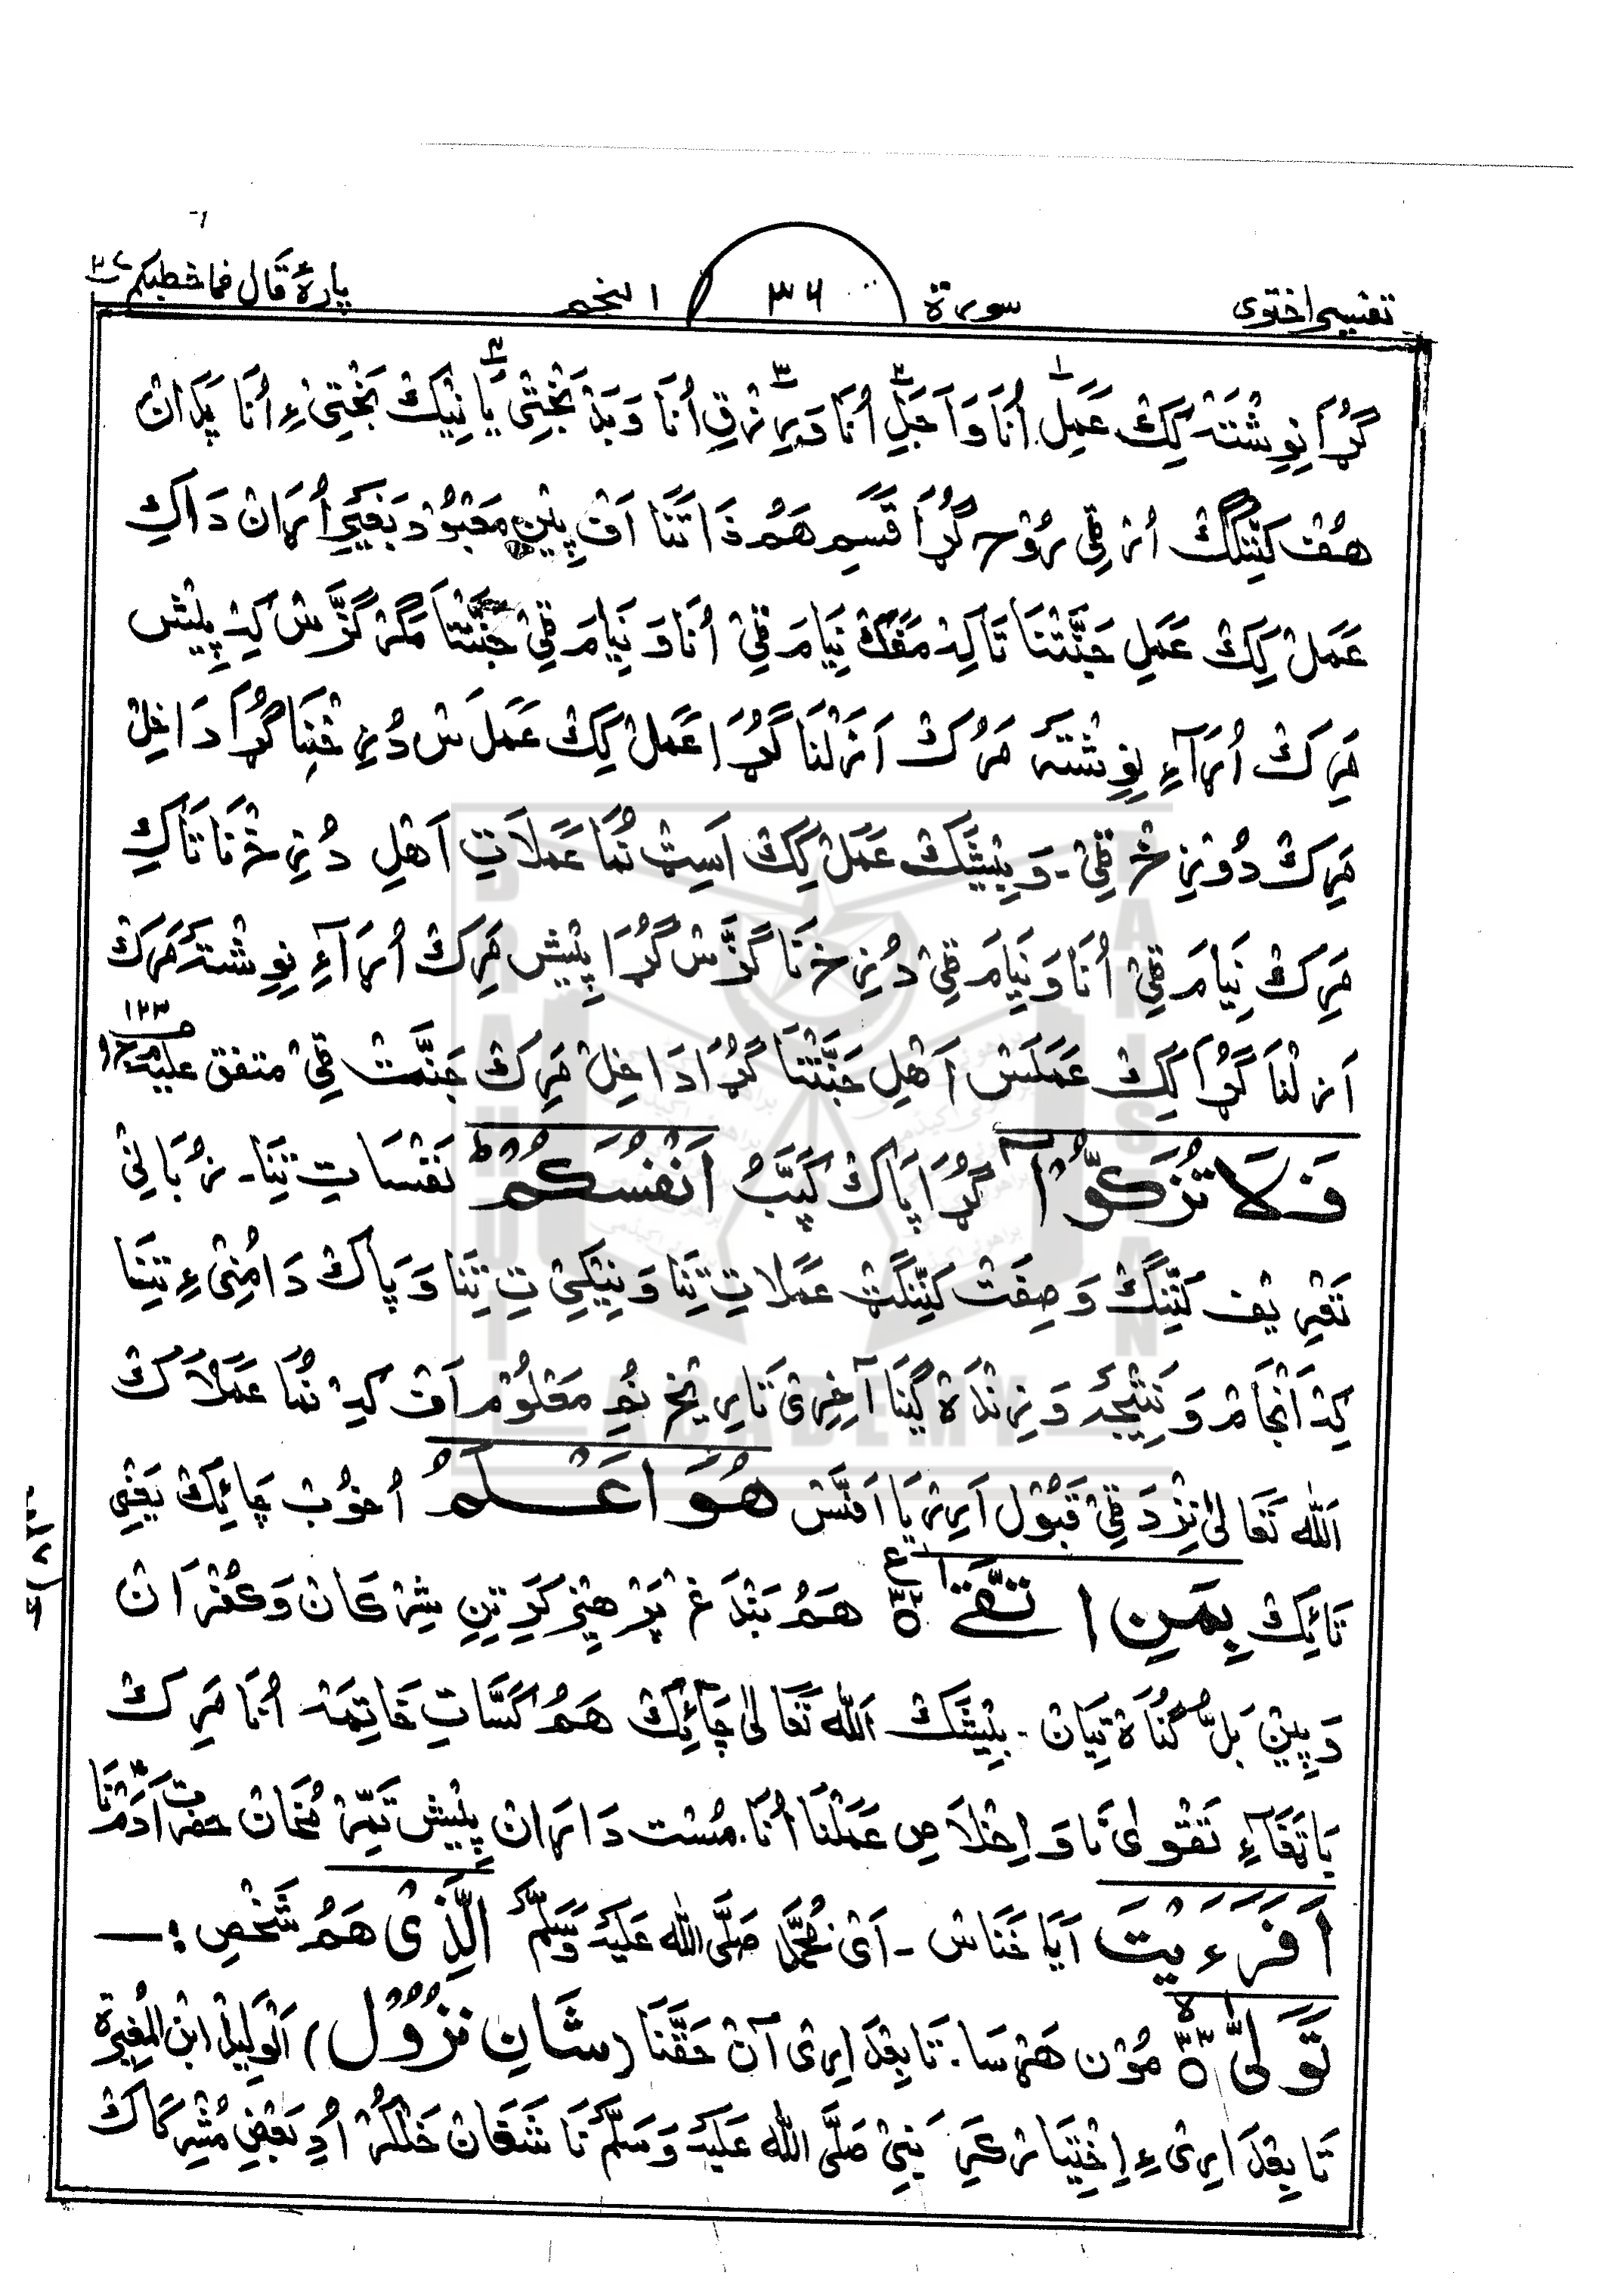 تفسیر اختری سورة ۳۶ النجم پارۀ قال فما خطبکم ۲۷
گُڑَا نِوِشْتَہ کِکْ عَمَلِ اُنَا وَ اَجَلِ اُنَا وَ رِزْقِ اُنَا وَ بَدْ بَخْتِیْ یَا نِیْکْ بَخْتِیْ ءِ اُنَا پَدَانْ
ہُفْ کَنِّنْگِکْ اُرْٹِیْ رُوْح گُڑَا قَسَمِ ہَمُ ذَاتَنَا اَفْ پِیْنِ مَعْبُوْد بَغَیْرِ اُرَانْ دَاکِ
عَمَلْ کِکْ عَمَلِ جَنَّتْنَا تَاکِہْ مَفَکْ نِیَامَ ٹِیْ اُنَا وَ نِیَامَ ٹِیْ جَنَّتْنَا مَگَرْ گَزَّسْ کِہْ پِیْش
مَرِکْ اُرَآءِ نِوِشْتَہ مَرُکْ اَزَلْنَا گُڑَا عَمَلْ کِکْ عَمَلَسْ دُزَخْنَا گُڑَا دَاخِلْ
مَرِکْ دُوْزَخْ ٹِیْ - وَ بِیْشَکْ عَمَلْ کِکْ اَسِٹْ نُمَا عَمَلَاتِ اَہْلِ دُزَخْنَا تَاکِ
مَرِکْ نِیَامَ ٹِیْ اُنَا وَ نِیَامَ ٹِیْ دُزَخْنَا گَزَّسْ گُڑَا پِیْش مَرِکْ اُرَآءِ نِوِشْتَہ مَرُکْ
اَزَلْنَا گُڑَا کِکْ عَمَلَسْ اَہْلِ جَنَّتْنَا گُڑَا دَاخِلْ مَرِکْ جَنَّتْ ٹِیْ متفق علیہ
فَلَا تُزَکُّوْٓا گُڑَا پَاکْ کَپَّبُ اَنْفُسَکُمْ ط نَفْسَاتِ تِنَا - زُبَانِیْ
تَعْرِیْف کَنِّنْگْ وَ صِفَتْ کَنِّنْگْ عَمَلَاتِ تِنَا وَ نِیْکِیْ تِ تِنَا وَ پَاکْ دَامُنِیْ ءِ تِنَا
کِہْ اَنْجَامْ وَ نَتِیْجَہ وَ زِنْدَہ گِنَا آخِرِیْ تَارِیْخ نُمِ مَعْلُوْم اَفْ کِہْ نُمَا عَمَلَاکْ
اَللّٰہ تَعَالیٰ نِزْدَ ٹِیْ قَبُوْل اَرِیْ یَا اَفَّسْ ھُوَ اَعْلَمُ اُ خُوْب چَائِکْ یَعْنِی
تَائِکْ بِمَنِ اتَّقٰی ہَمُ بَنْدَغْ پَرْہِیْز کَرِ تِیْنِ شِرْکَانْ وَ کُفْرَانْ
وَ پِیْنْ بَلُّ گُنَاہ تِیَانْ - بِیْشَکْ اَللّٰہ تَعَالیٰ چَائِکْ ہَمُ کَسَّاتِ خَاتِمَہْ اُنَا مَرِکْ
بَاتِّقَآءِ تَقْوٰی نَا وَ اِخْلَاص عَمَلْنَا اُنَا. مُسْت دَارَانْ پِیْش تَمِّرْ مُخَانْ حضرت آدَمْ نَا
اَفَرَءَیْتَ آیَا خَنَاسْ - اَیْ مُحَمَّدْ صَلَّی اللّٰہ عَلَیْہِ وَسَلَّمَ الَّذِیْ ہَمُ شَخْصِ :—
تَوَلّٰی مُوْن ہَرْسَا. تَابِعْدَارِیْ آنْ حَقَّنَا (شَانِ نُزُوْل) اَلْوَلِیْدُ ابْنُ الْمُغِیْرَۃ
تَابِعْدَارِیْ ءِ اِخْتِیَار کَرِ نَبِیْ صَلَّی اللّٰہ عَلَیْہِ وَسَلَّمَ نَا شَعَانْ خَلْکُرْ اُدِ بَعْضِ مُشْرِکَاکْ
BRAHUI
ACADEMY